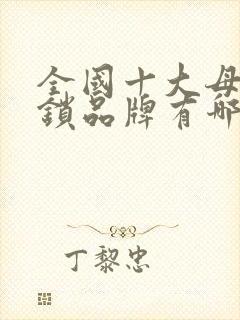 全國十大母
鎖品牌有哪
丁黎忠